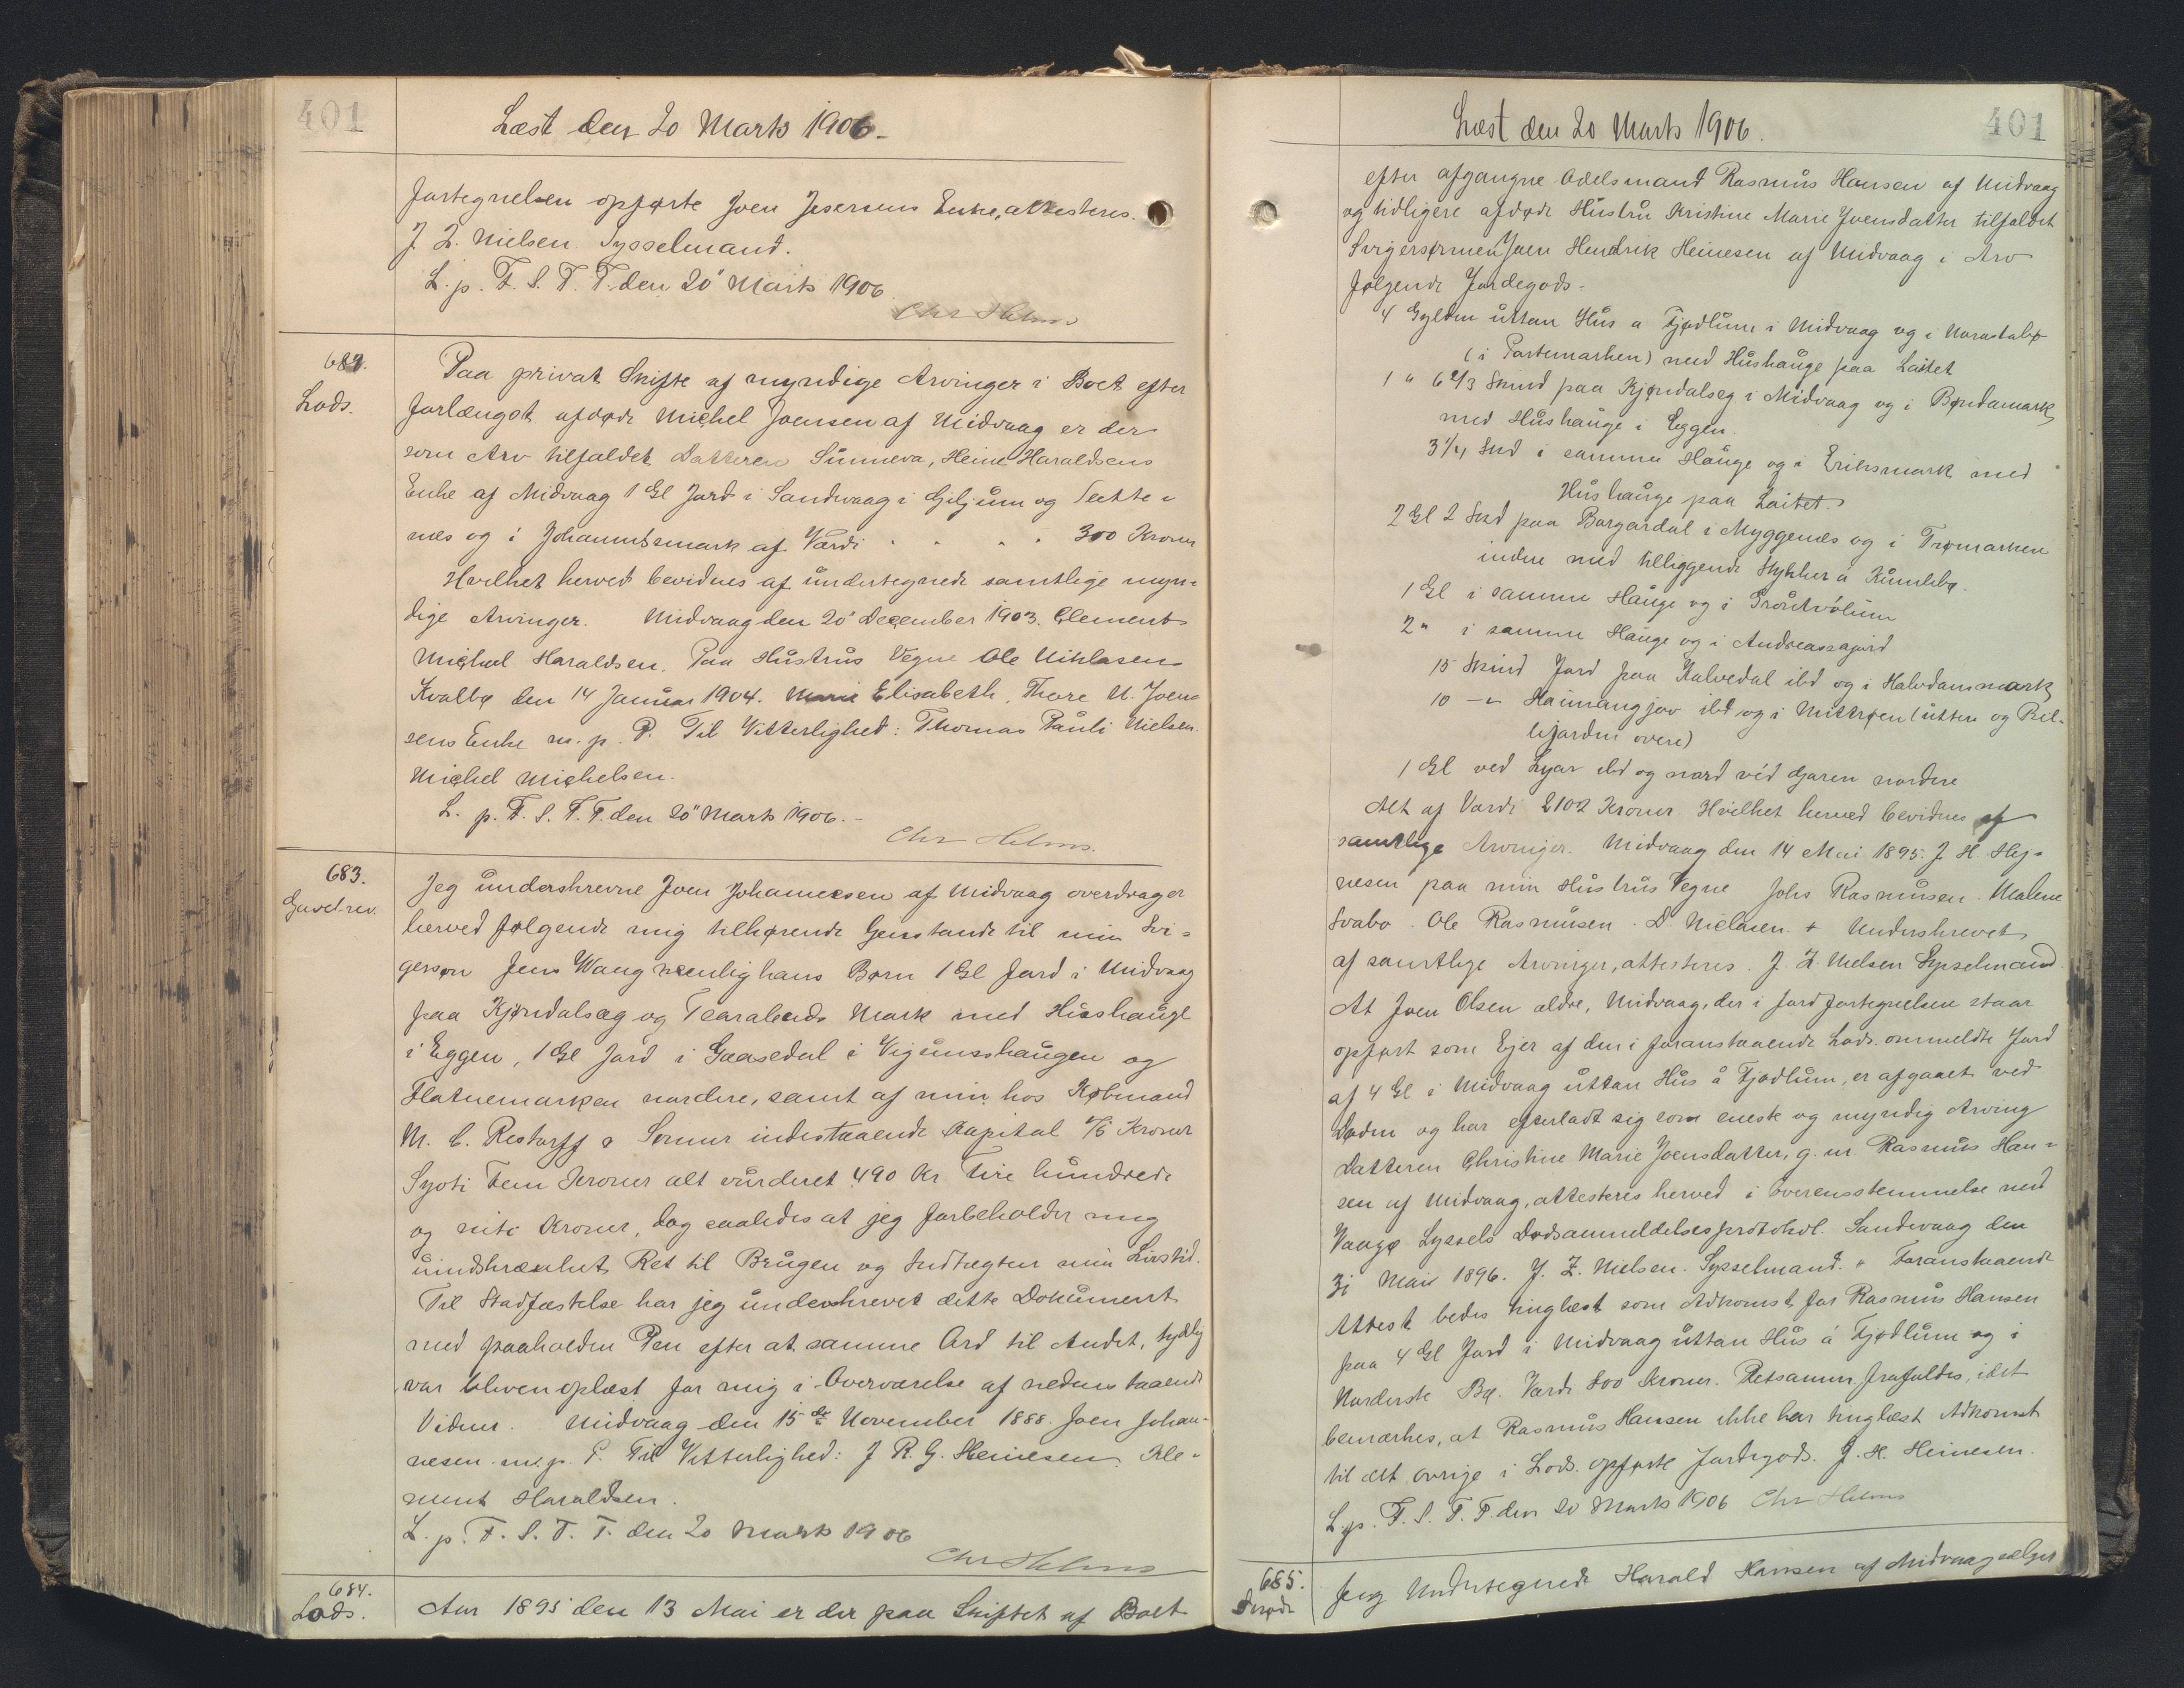 401
Læst den 20 Marts 1906.
Jortegnelsen opførte Joen Jesersens Enke, attesteres.
J Z. Nielsen. Sysselmand.
L. p. F. S. T. T. den 20' Marts 1906
Chr Helms
682.
Lods.
Paa privat Skifte af myndige Arvinger i Boet efter
forlængst afdøde Michel Joensen af Midvaag er der
som Arv tilfaldet Datteren Sunneva, Heine Haraldsens
Enke af Midvaag 1 Gl Jord i Sandvaag i Giljum og Tekte=
næs og i Johannesmark af Værdi " " " " 300 Kroner
Hvilket herved bevidnes af undertegnede samtlige myn=
dige Arvinger. Midvaag den 20' December 1903. Clement
Michael Haraldsen. Paa Hustrus Vegne Ole Niklasen
Kvalbø den 14 Januar 1904. Elisabeth, Thore N. Joen=
sens Enke m. p. P. Til Vitterlighed: Thomas Pauli Nielsen.
Michel Michelsen.
L. p. F. S. T. T. den 20" Marts 1906.-
Chr Helms.
683.
Gavebrev.
Jeg underskrevne Joen Johannesen af Midvaag overdrager
herved følgende mig tilhørende Genstande til min Svi=
gersøn Jens Waag nemlig hans Børn 1 Gl Jord i Midvaag
paa Kjøndalsæg og Tearabends Mark med Huushauge
i Eggen, 1 Gl Jord i Gaasedal i Vigumshaugen og
Flatnemarken nordere, samt af min hos Købmand
M. C. Restorff & Sønner indestaaende Kapital 75 Kroner
Syoti Fem Kroner alt vurderet 490 Kr Fire hundrede
og niti Kroner, dog saaledes at jeg forbeholder mig
uindskrænket Ret til Brugen og Indtægten min Livstid.
Til Stadfæstelse har jeg underskrevet dette Dokument
med paaholden Pen efter at samme Ord til Andet, tydelig
var bleven oplæst for mig i Overværelse af nedenstaaende
Vidner. Midvaag den 15de November 1888. Joen Johan-
nesen m. p. P. Til Vitterlighed: J R. G. Heinesen. Kle-
ment Haraldsen.
L. p. F. S. T. T. den 20 Marts 1906
Chr Helms
684.
Lods.
Aar 1895 den 13 Mai er der paa Skiftet af Boet
Læst den 20 Marts 1906.
401
efter afgangne Odelsmand Rasmus Hansen af Midvaag
og tidligere afdøde Hustru Kristine Marie Joensdatter tilfaldet
Svigersønnen Joen Hendrik Heinesen af Midvaag i Arv
følgende Jordegods.
4 Gylden uttan Hus a Fjødlum i Midvaag og i Norastabø
(i Partemarken) med Hushauge paa Laitet
1 " 6 2/3 Skind paa Kjøndalseg i Midvaag og i Bøndamark
med Hushauge i Eggen.
3 1/4 Snd i samme Hauge og i Eriksmark med
Hushauge paa Laitet.
2 Gl 2 Snd paa Borgardal i Myggenæs og i Trømarken
indre med tilliggende Stykker a Kumlebø.
1 Gl i samme Hauge og i Grøutvólum
2 " i samme Hauge og i Andreassajord
15 Skind Jord paa Kalvedal ibd og i Halvdansmark
10 -"- Haimangjov ibd og i Mittrøen (uttere og Bel-
lijarden overe)
1 Gl ved Lyar ibd og nord við Garen nordere
Alt af Værdi 2102 Kroner. Hvilket herved bevidnes af
samtlige Arvinger. Midvaag den 14 Mai 1895. J. H. Hej=
nesen paa min Hustrus Vegne Johs Rasmussen. Malene
Svabo. Ole Rasmusen. D. Niclasen. + Underskrevet
af samtlige Arvinger, attesteres. J. Z. Nielsen Sysselmand.
At Joen Olsen ældre, Midvaag, der i Jordfortegnelsen staar
opført som Ejer af den i foranstaaende Lods. ommeldte Jord
af 4 Gl i Midvaag uttan Hus á Fjødlum, er afgaaet ved
Døden og har efterladt sig som eneste og myndig Arving
Datteren Christine Marie Joensdatter, g. m. Rasmus Han=
sen af Midvaag, attesteres herved i Overensstemmelse med
Vaagø Syssels Dødsanmeldelsesprotokol. Sandevaag den
31 Mai 1896. J. Z. Nielsen. Sysselmand. " Foranstaaende
Attest bedes tinglæst som Adkomst for Rasmus Hansen
paa 4 Gl Jord i Midvaag uttan Hus á Fjødlum og i
Norderste Bø. Værdi 800 Kroner. Retsanmr. frafaldes, idet
bemærkes, at Rasmus Hansen ikke har tinglæst Adkomst
til det øvrige i Lods. opførte Jordegods. J. H. Heinesen.
L. p. F. S. T. T. den 20 Marts 1906 Chr Helms
685.
Skøde
Jeg Undertegnede Harald Hansen af Midvaag sælger